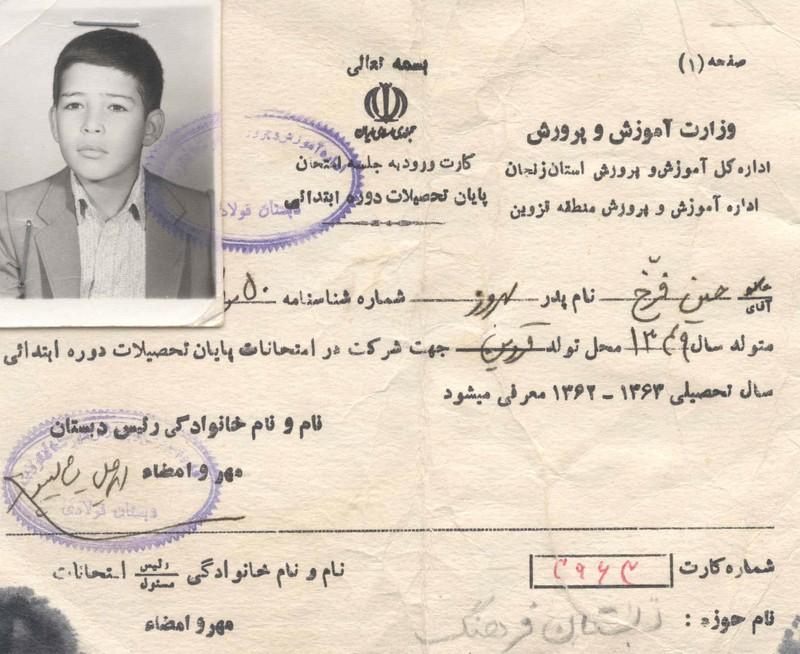 صفحه (۱)
بسمه تعالی
جمهوری اسلامی ایران
وزارت آموزش و پرورش
اداره کل آموزش و پرورش استان زنجان
اداره آموزش و پرورش منطقه قزوین
کارت ورود به جلسه امتحان
پایان تحصیلات دوره ابتدائی
دبستان فولادی
آقای حسین فرّخ نام پدر بهروز شماره شناسنامه ۵۰
متولد سال ۱۳۴۹ محل تولد قزوین جهت شرکت در امتحانات پایان تحصیلات دوره ابتدائی
سال تحصیلی ۱۳۶۳ - ۱۳۶۲ معرفی میشود
نام و نام خانوادگی رئیس دبستان
مهر و امضاء
دبستان فولادی
شماره کارت
نام و نام خانوادگی رئیس مسئول امتحانات
نام حوزه : دبستان فرهنگ
مهر و امضاء